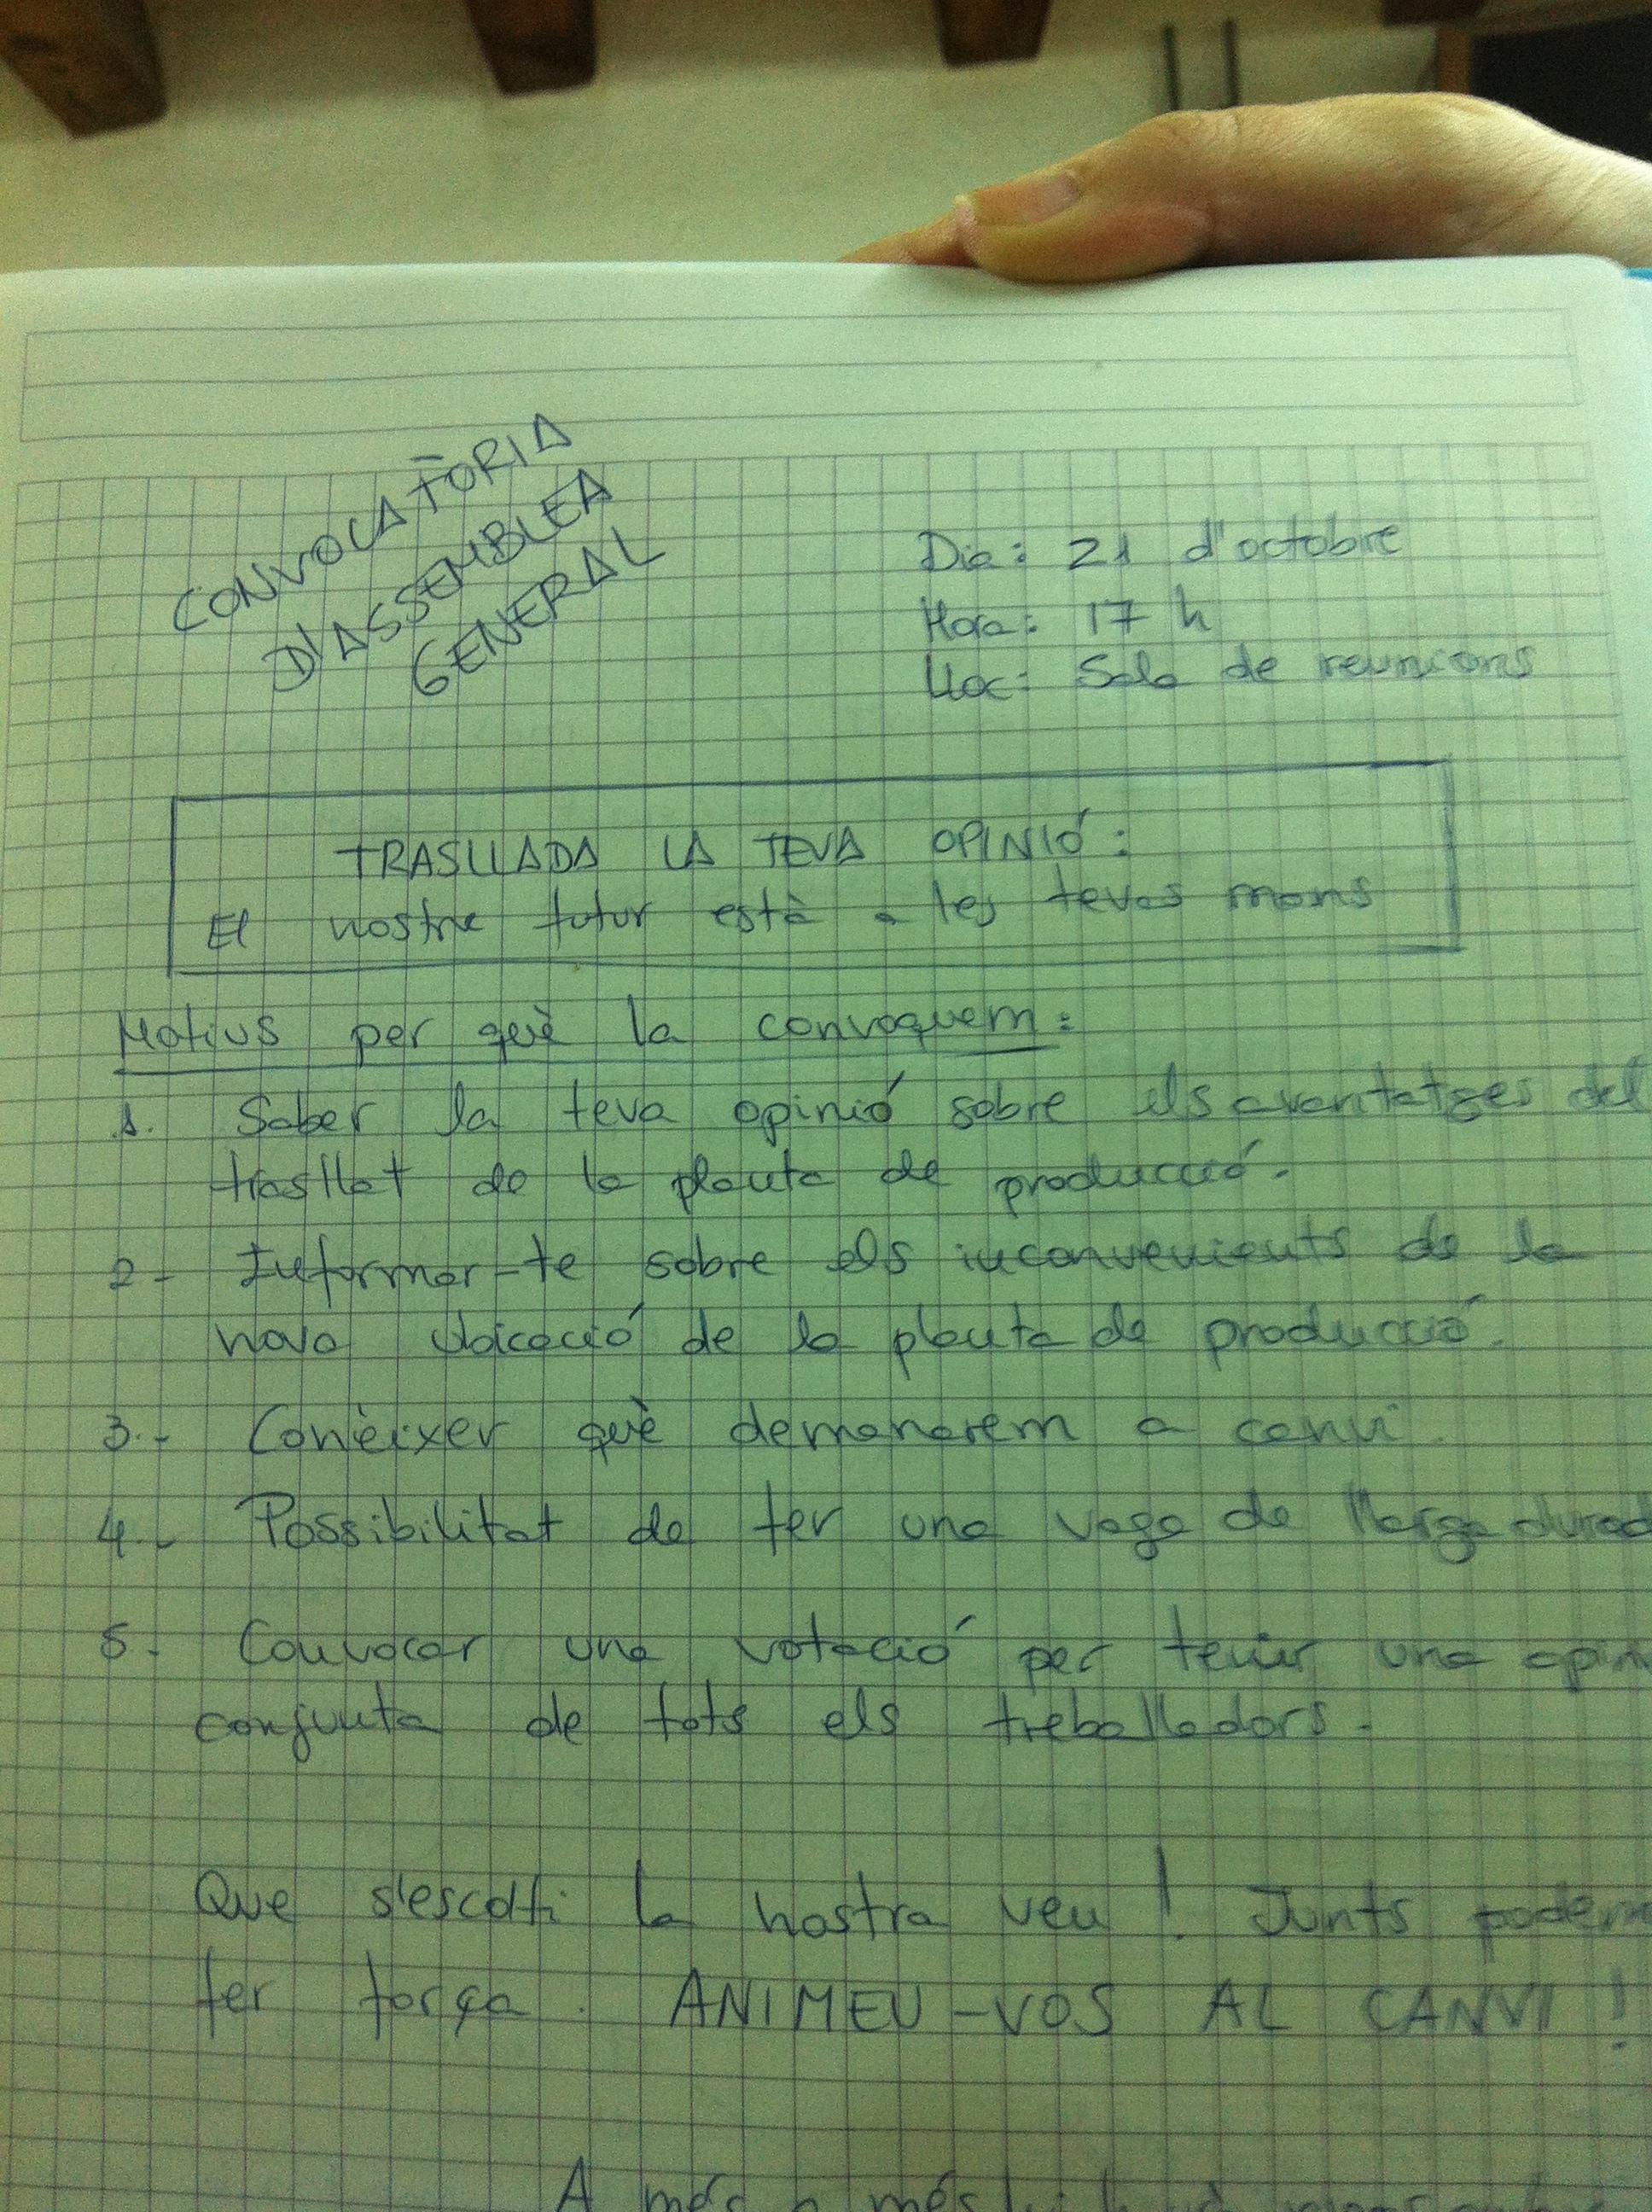 CONVOCATÒRIA
D'ASSEMBLEA
GENERAL
Dia: 21 d'octobre
Hora: 17 h
Lloc: Sala de reunions
TRASLLADA LA TEVA OPINIÓ:
El nostre futur està a les teves mans
Motius per què la convoquem:
1. Saber la teva opinió sobre els avantatges del
trasllat de la planta de producció.
2- Informar-te sobre els inconvenients de la
nova ubicació de la planta de producció.
3.- Conèixer què demanarem a canvi.
4.- Possibilitat de fer una vaga de llarga durad
5- Convocar una votació per tenir una opin
conjunta de tots els treballadors.
Que s'escolti la nostra veu! Junts podem
fer força. ANIMEU-VOS AL CANVI!
A més a més hi